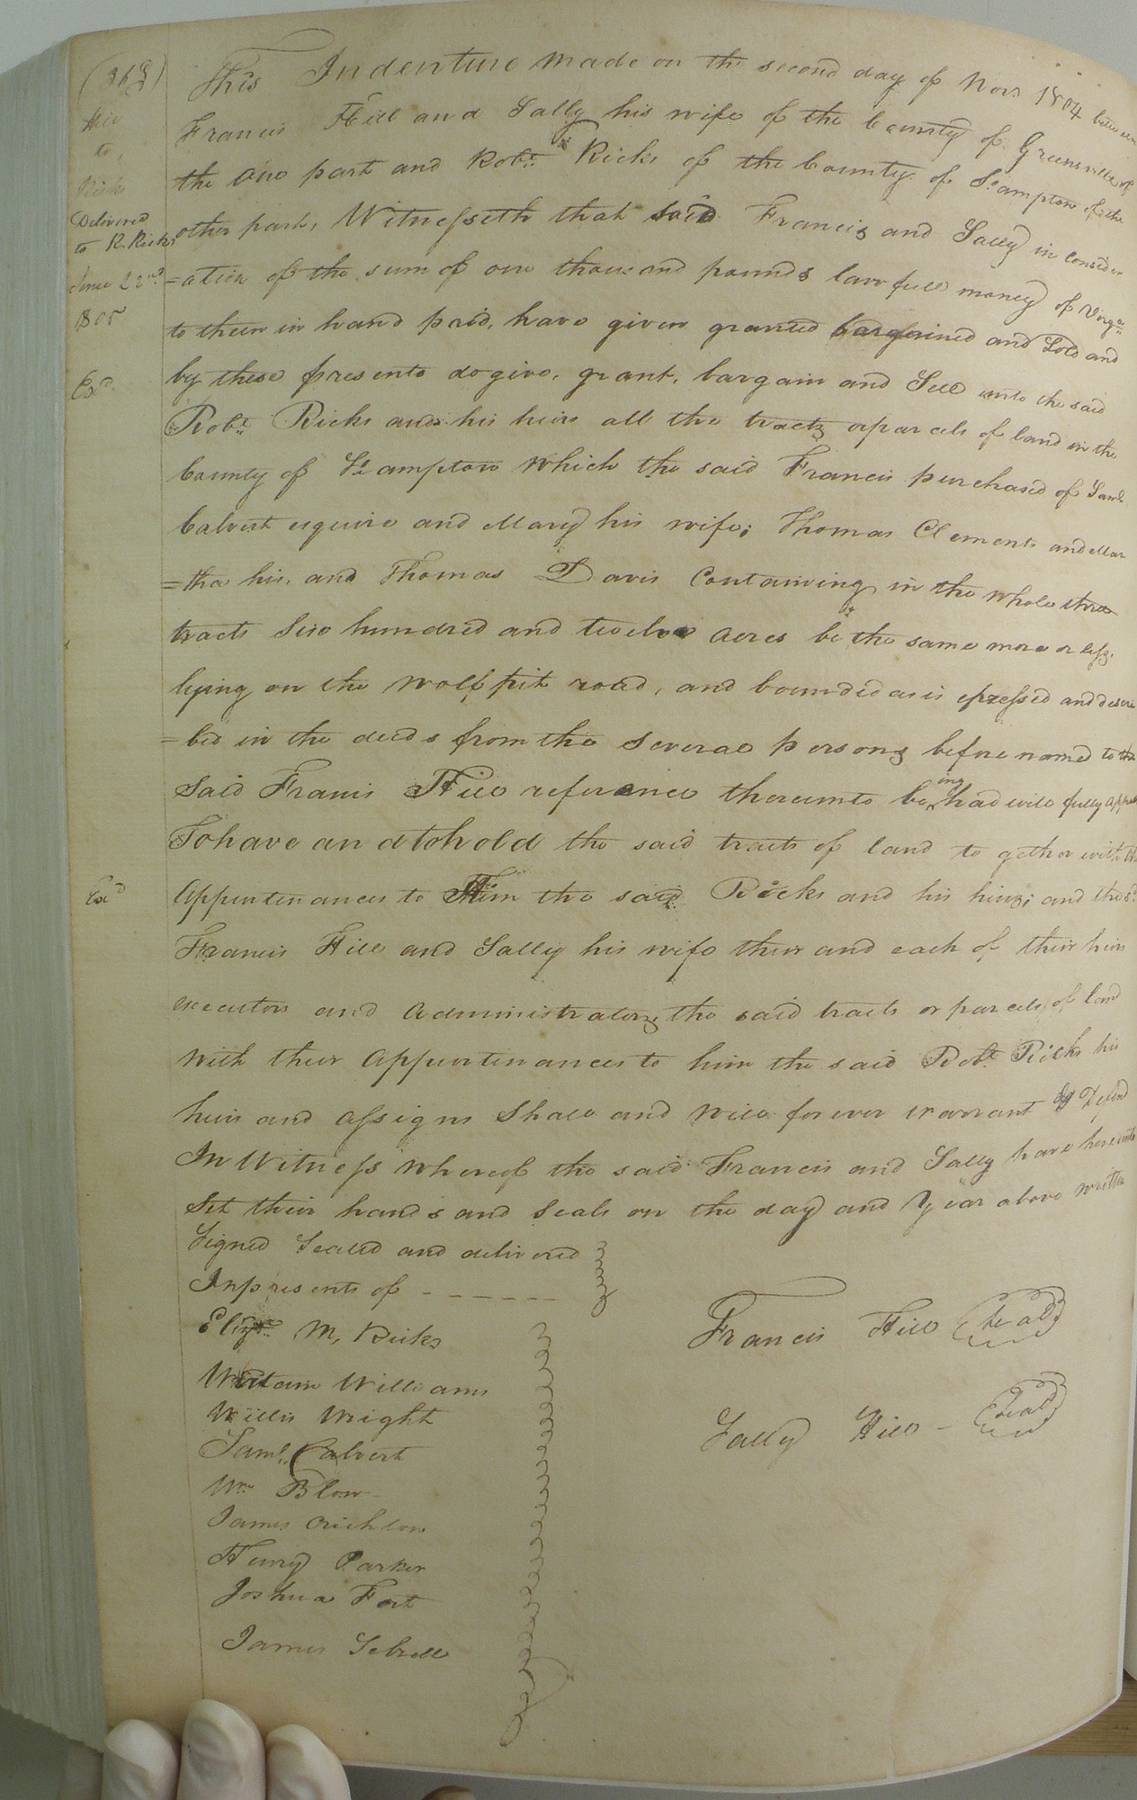 (363)
Hill
to
Ricks
Delivered
to R. Ricks
June 22nd
1805
Exd.
Exd
This Indenture made on the second day of Novr 1804 between
Francis Hill and Sally his wife of the County of Greensville of
the one part and Robt. Ricks of the County of So.ampton of the
other part, Witnesseth that said Francis and Sally in consider
=ation of the sum of one thousand pounds lawfull money of Virga.
to them in hand paid, have given granted bargained and Sold and
by these presents do give, grant, bargain and Sell unto the said
Robt. Ricks and his heirs all the tracts or parcels of land in the
County of So.ampton which the said Francis purchased of Saml.
Calvert esquire and Mary his wife; Thomas Clements and Mar
=tha his, and Thomas Davis Containing in the whole three
tracts Six hundred and twelve acres be the same more or less,
lying on the Wolf pit road, and bounded as is expressed and descri
=bed in the deeds from the several persons before named to the
Said Franis Hill reference thereunto being had will fully appear
To have and to hold the said tracts of land to gether with the
Appurtenances to Him the said Ricks and his heirs; and the sd.
Francis Hill and Sally his wife their and each of their heirs
executors and Administrators, the said tracts or parcels of land
with their appurtenances to him the said Robt. Ricks his
heirs and assigns Shall and will forever warrant & Defend
In Witness whereof the said Francis and Sally have hereunto
Set their hands and Seals on the day and Year above written
Signed Sealed and delivered
In presents of - - - - - -
Elizth M. Ricks
William Williams
Willis Wright
Saml. Calvert
Wm Blow
James Crichlow
Henry Parker
Joshua Fort
James Sebrell
Francis Hill (Seal)
Sally Hill - (Seal)